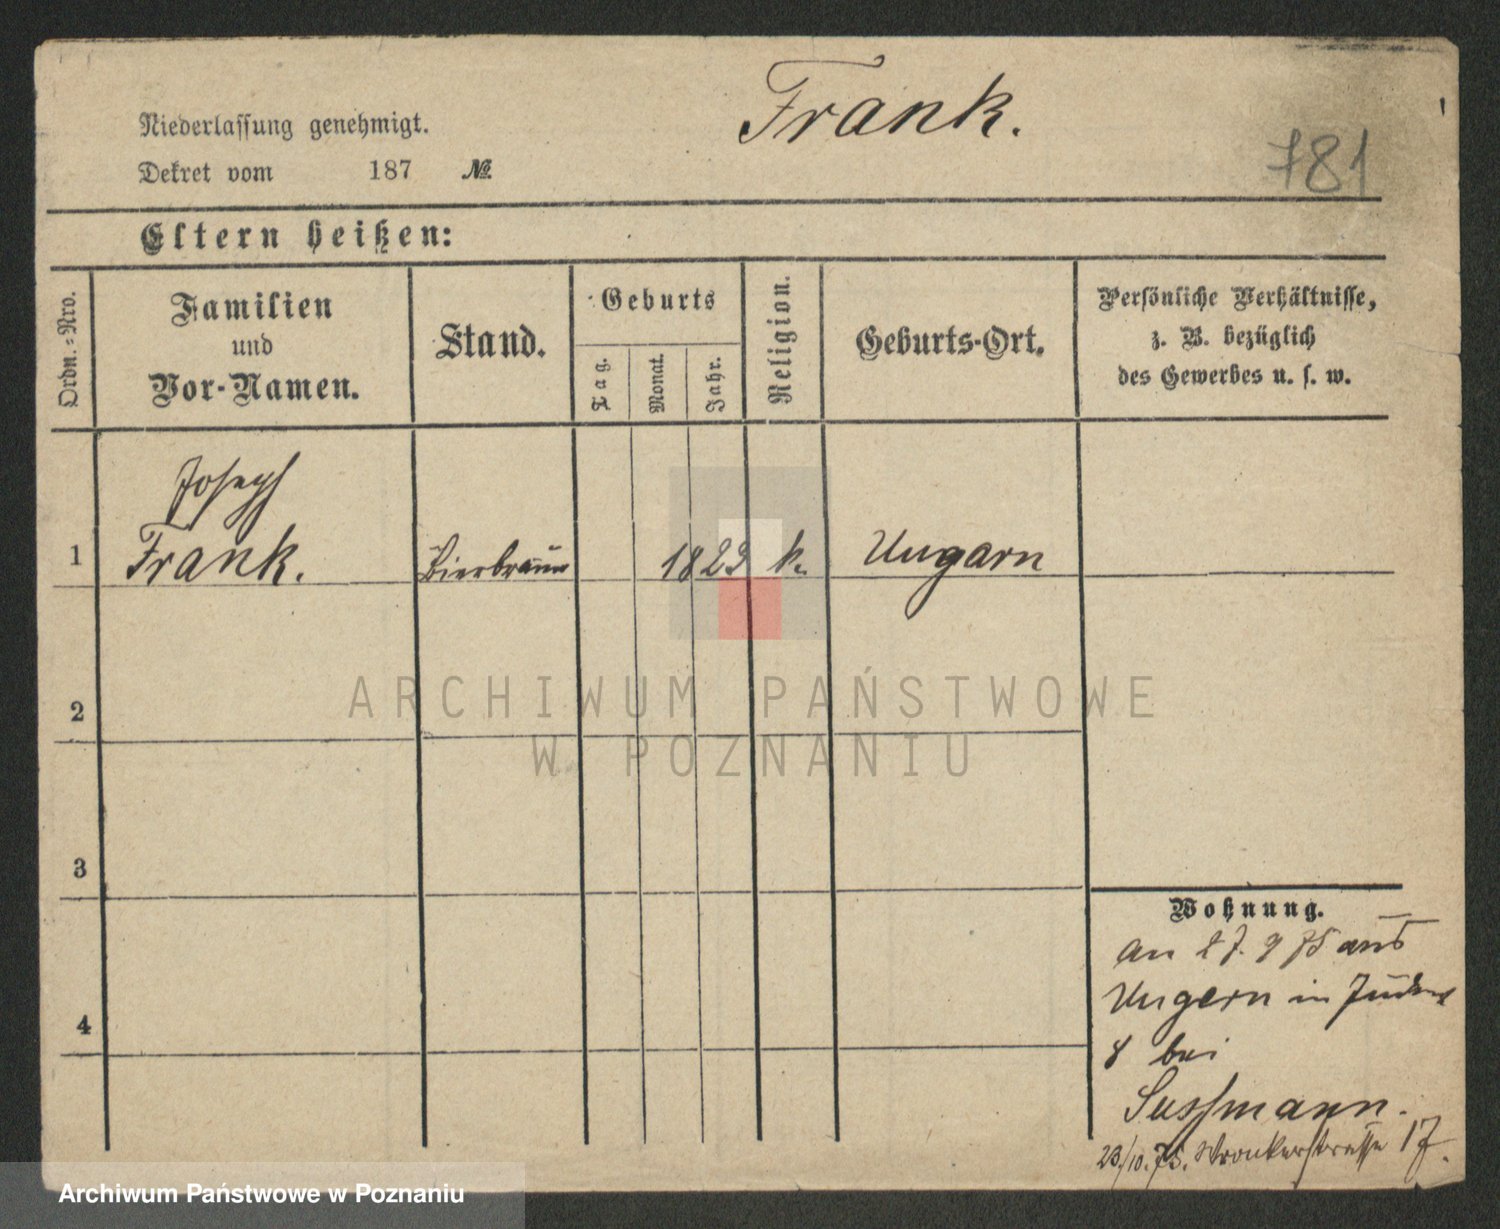 Frank.
781
Niederlassung genehmigt.
Dekret vom 187 №
Eltern heißen:
Ordn.-Nro.
Familien
und
Vor-Namen.
Stand.
Geburts
Tag.
Monat.
Jahr.
Religion.
Geburts-Ort.
Persönliche Verhältnisse,
z. B. bezüglich
des Gewerbes u. s. w.
Joseph
1 Frank. Bierbrauer 1829 k. Ungarn
2
ARCHIWUM PAŃSTWOWE
W POZNANIU
3
Wohnung.
an 27. 9 75 aus
Ungern in
4
8 bei
Sussmann.
23/10. 75. Wronkerstrasse 17.
Archiwum Państwowe w Poznaniu